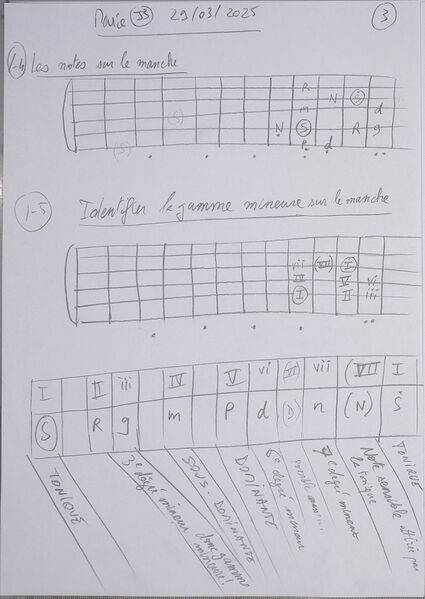 Marie JJ 29/03/2025 3
1-4 Les notes sur le manche
R
N (S)
m d
(S)
N (S) R g
P d
(S)
1-5 Identifier la gamme mineure sur le manche
vii (VII) I
IV V vi
I II iii
I II iii IV V vi (VI) vii (VII) I
S R g m P d (D) n (N) S
TONIQUE
3e degré mineur donc gamme mineure!
SOUS-DOMINANTE
DOMINANTE
6e degré mineur
possible aussi...
7e degré mineur
Note sensible attirée par la tonique
TONIQUE